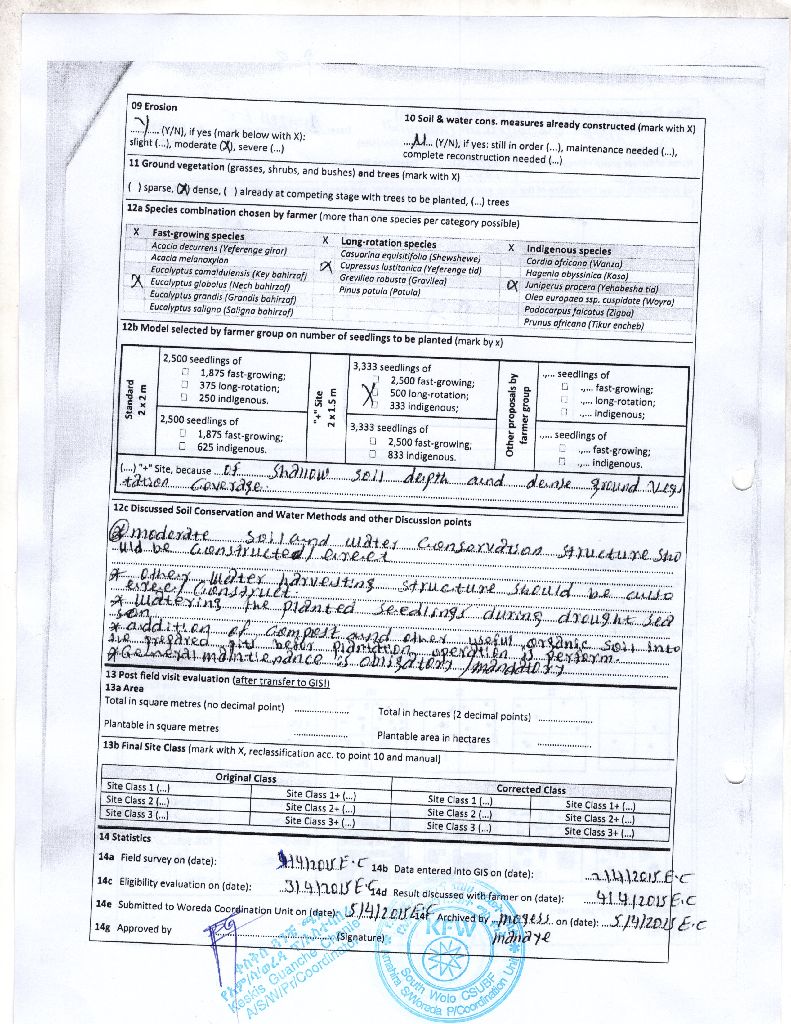 09 Erosion
..Y.. (Y/N), if yes (mark below with X):
slight (...), moderate (X), severe (...)
10 Soil & water cons. measures already constructed (mark with X)
...N... (Y/N), if yes: still in order (...), maintenance needed (...),
complete reconstruction needed (...)
11 Ground vegetation (grasses, shrubs, and bushes) and trees (mark with X)
( ) sparse, (X) dense, ( ) already at competing stage with trees to be planted, (...) trees
12a Species combination chosen by farmer (more than one species per category possible)
X Fast-growing species
Acacia decurrens (Yeferenge girar)
Acacia melanoxylon
Eucalyptus camaldulensis (Key bahirzaf)
X Eucalyptus globolus (Nech bahirzaf)
Eucalyptus grandis (Grandis bahirzaf)
Eucalyptus saligna (Saligna bahirzaf)
X Long-rotation species
Casuarina equisitifolia (Shewshewe)
X Cupressus lustitanica (Yeferenge tid)
Grevillea robusta (Gravilea)
Pinus patula (Patula)
X Indigenous species
Cordia africana (Wanza)
Hagenia abyssinica (Koso)
X Juniperus procera (Yehabesha tid)
Olea europaea ssp. cuspidate (Woyra)
Podocarpus falcatus (Zigba)
Prunus africana (Tikur encheb)
12b Model selected by farmer group on number of seedlings to be planted (mark by x)
Standard
2 x 2 m
2,500 seedlings of
1,875 fast-growing;
375 long-rotation;
250 indigenous.
2,500 seedlings of
1,875 fast-growing;
625 indigenous.
"+" Site
2 x 1.5 m
3,333 seedlings of
2,500 fast-growing;
X 500 long-rotation;
333 indigenous;
3,333 seedlings of
2,500 fast-growing;
833 indigenous.
Other proposals by
farmer group
.,... seedlings of
.,... fast-growing;
.,... long-rotation;
.,... indigenous;
.,... seedlings of
.,... fast-growing;
.,... indigenous.
(....) "+" Site, because ...of shallow soil depth and dense ground vege
tation coverage.
12c Discussed Soil Conservation and Water Methods and other Discussion points
* moderate soil and water conservation structure sho
uld be constructed/erect
* other water harvesting structure should be also
erect/construct.
* watering the planted seedlings during drought sea
son
* addition of compost and other useful organic soil into
the prepared pits before plantation operation is perform.
* General maintienance is obligatory/mandatory
13 Post field visit evaluation (after transfer to GIS!)
13a Area
Total in square metres (no decimal point) ................
Total in hectares (2 decimal points) ................
Plantable in square metres ................
Plantable area in hectares ................
13b Final Site Class (mark with X, reclassification acc. to point 10 and manual)
Original Class
Corrected Class
Site Class 1 (...) Site Class 1+ (...) Site Class 1 (...) Site Class 1+ (...)
Site Class 2 (...) Site Class 2+ (...) Site Class 2 (...) Site Class 2+ (...)
Site Class 3 (...) Site Class 3+ (...) Site Class 3 (...) Site Class 3+ (...)
14 Statistics
14a Field survey on (date): 1/4/2015 E.C
14b Data entered into GIS on (date): 2/4/2015 E.C
14c Eligibility evaluation on (date): 3/4/2015 E.C
14d Result discussed with farmer on (date): 4/4/2015 E.C
14e Submitted to Woreda Coordination Unit on (date): 5/4/2015 E.C
14f Archived by mogess manaye on (date): 5/4/2015 E.C
14g Approved by ................ (Signature)
A/S/W/Pr/Coordination
KFW
South Wolo CSUBF